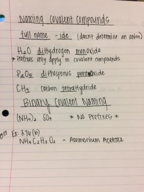 Naming Covalent Compounds
full name - ide (doesnt determine an anion)
H₂O dihydrogen monoxide
* Prefixes only apply in covalent compounds
P₂O₅ diphosphorus pentoxide
CH₄ carbon tetrahydride
Binary Covalent Naming
(NH₄)₂ SO₄ * No Prefixes *
Ex:
NH₄C₂H₃O₂ - Ammonium Acetate